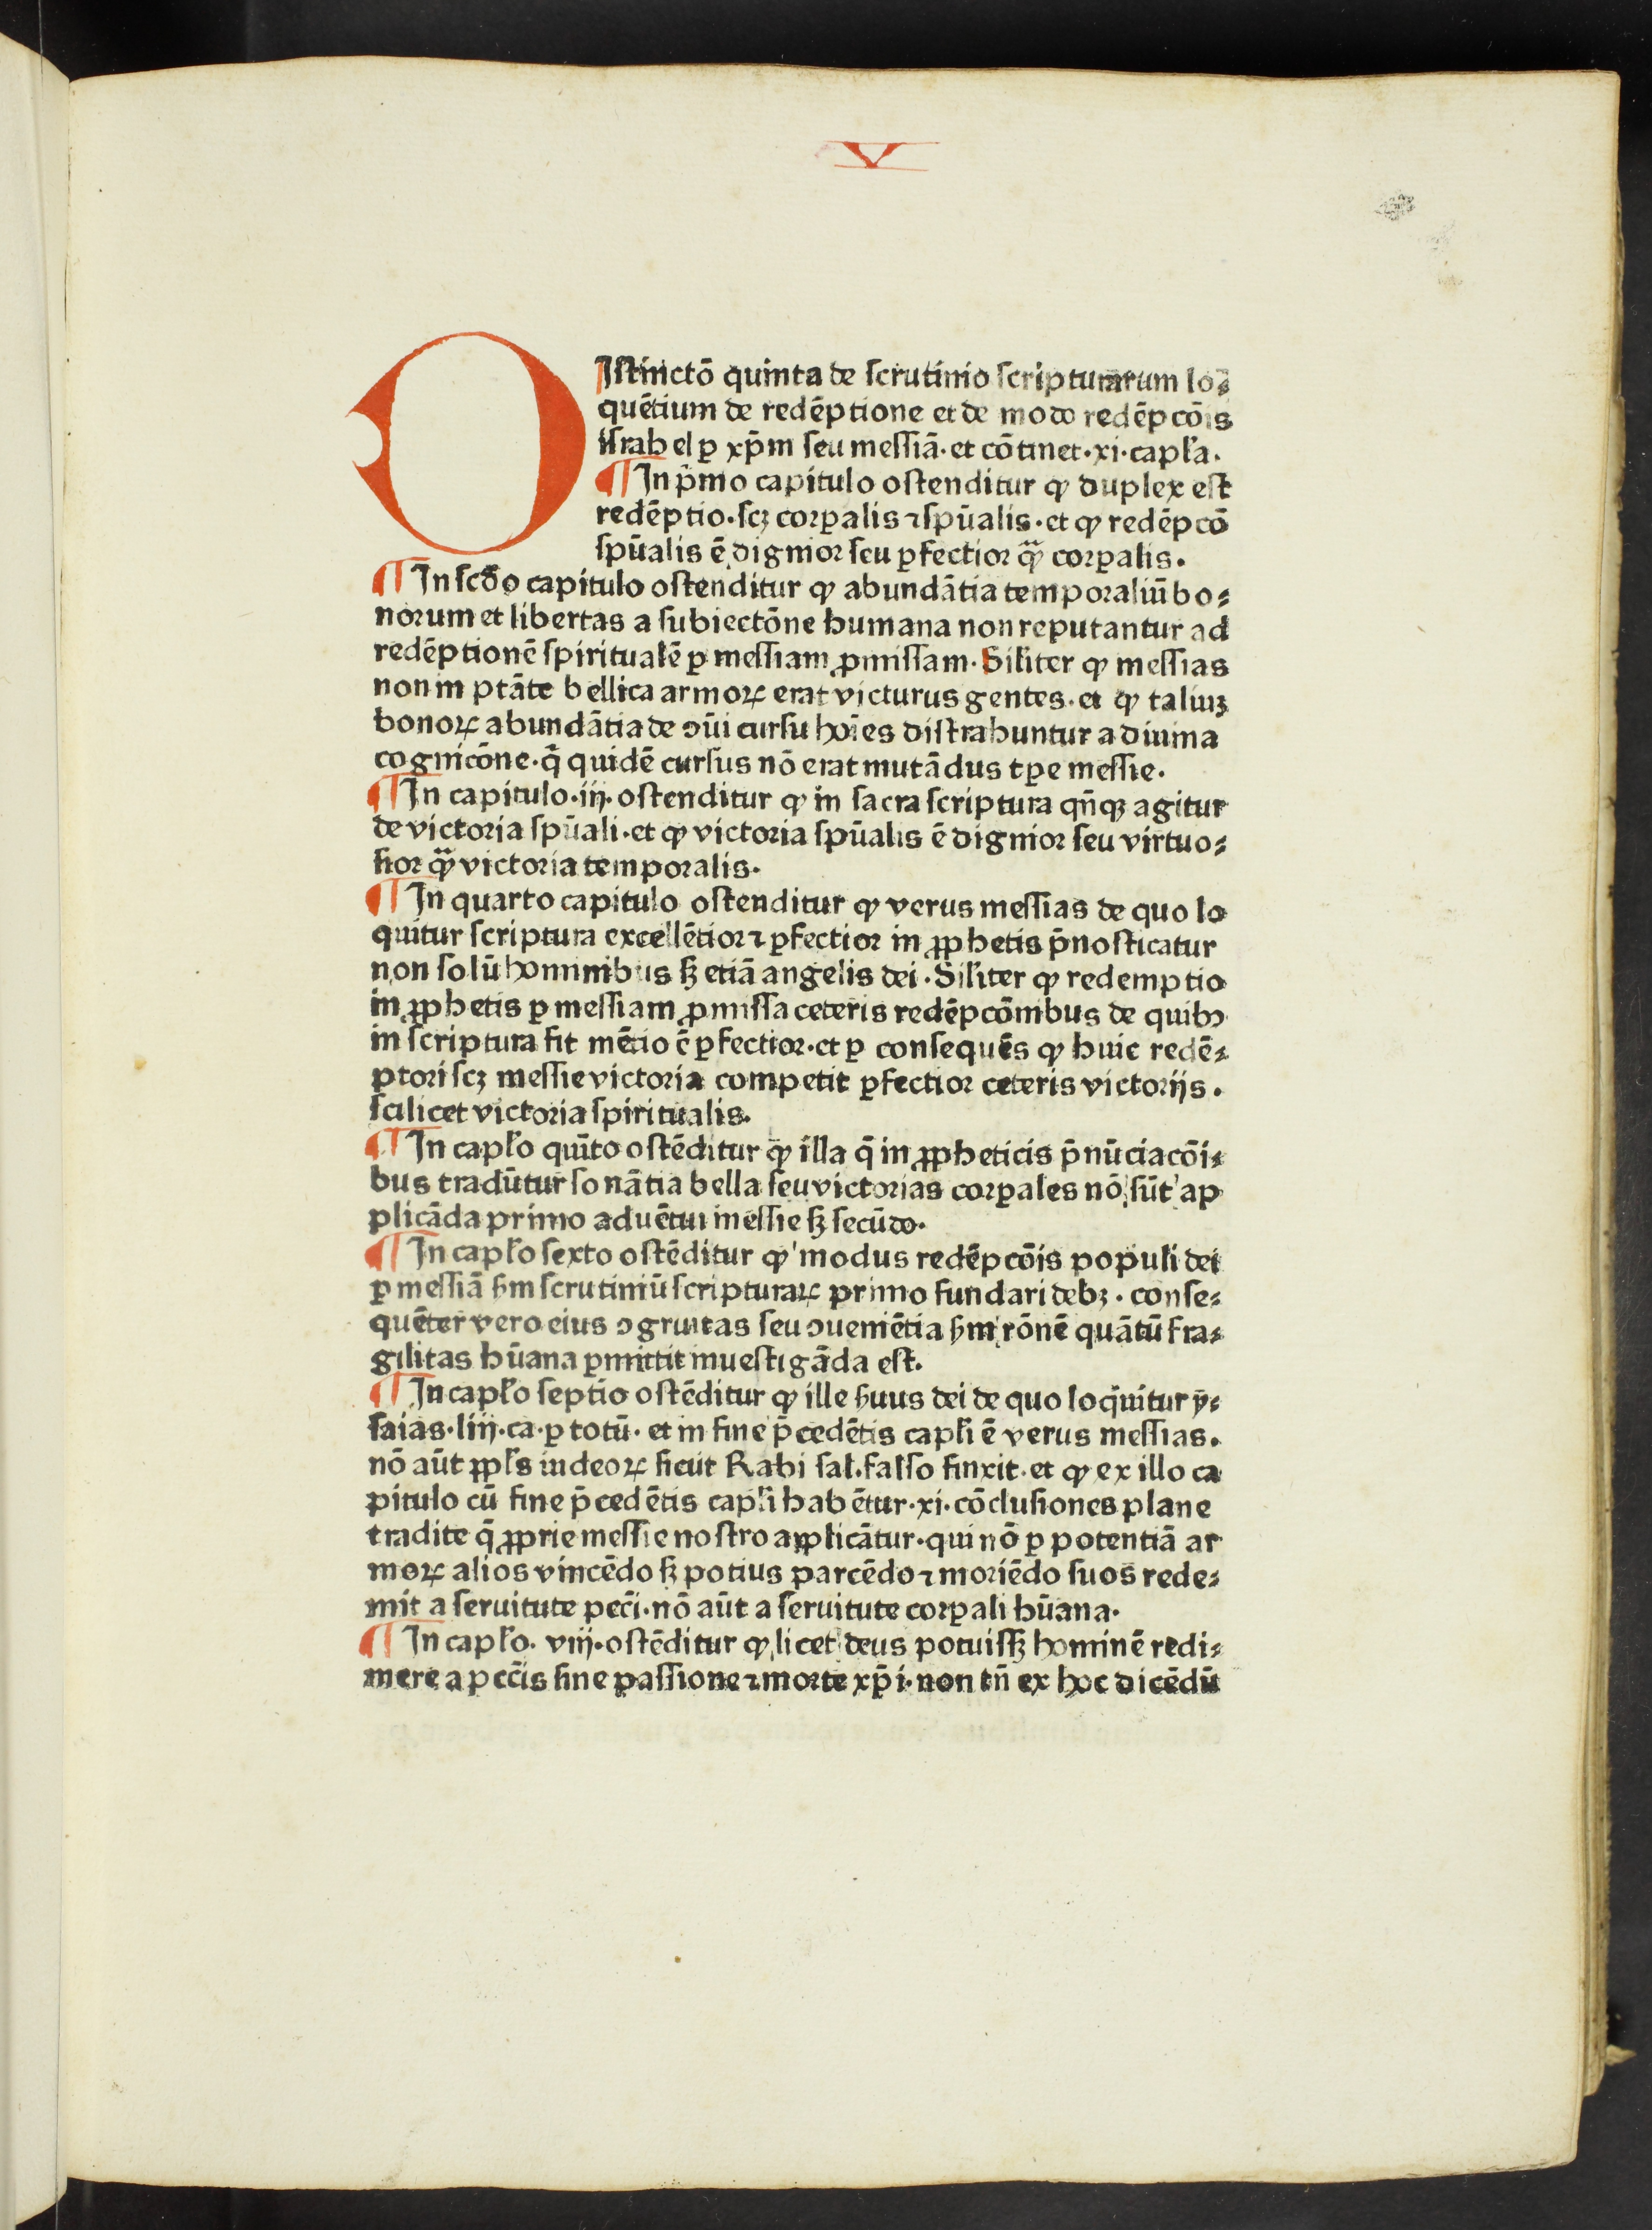 V
DIstinctō quinta de scrutinio scripturarum lo⸗
quētium de redēptione et de modo redēpcōis
israhel ꝑ xp̄m seu messiā· et cōtinet·xi·capl̄a·
¶ In p̄mo capitulo ostenditur ꝙ duplex est
redēptio·scꝫ corꝑalis ⁊ spūalis·et ꝙ redēpcō
spūalis ē dignior seu ꝑfectior q̄ꝫ corꝑalis.
¶ In scd̄o capitulo ostenditur ꝙ abundātia temporaliū bo⸗
norum et libertas a subiectōne humana non reputantur ad
redēptionē spiritualē ꝑ messiam ꝓmissam· Sil̄iter ꝙ messias
non in ptāte bellica armoꝝ erat victurus gentes·et ꝙ taliuꝫ
bonoꝝ abundātia de ꝯūi cursu hoīes distrahuntur a diuina
cognicōne·q̄ quidē cursus nō erat mutādus tꝑe messie·
¶ In capitulo·iij·ostenditur ꝙ in sacra scriptura qn̄qꝫ agitur
de victoria spūali·et ꝙ victoria spūalis ē dignior seu virtuo⸗
sior q̄ꝫ victoria temporalis·
¶ In quarto capitulo ostenditur ꝙ verus messias de quo lo
quitur scriptura excellētior ⁊ ꝑfectior in ꝓphetis p̄nosticatur
non solū hominibus sꝫ etiā angelis dei· Sil̄iter ꝙ redemptio
in ꝓphetis ꝑ messiam ꝓmissa ceteris redēpcōnibus de quibꝯ
in scriptura fit mētio ē ꝑfectior·et ꝑ consequēs ꝙ huic redē⸗
ptori scꝫ messie victoria competit ꝑfectior ceteris victorijs.
scilicet victoria spiritualis·
¶ In capl̄o quīto ostēditur ꝙ illa q̄ in ꝓpheticis p̄nūciacōi⸗
bus tradūtur sonātia bella seu victorias corꝑales nō sūt ap
plicāda primo aduētui messie sꝫ secūdo·
¶ In capl̄o sexto ostēditur ꝙ modus redēpcōis populi dei
ꝑ messiā ẜm scrutiniū scripturaꝝ primo fundari debꝫ · conse⸗
quēter vero eius ꝯgruitas seu ꝯueniētia ẜm rōnē quātū fra⸗
gilitas hūana ꝑmittit inuestigāda est.
¶ In capl̄o septīo ostēditur ꝙ ille ẜuus dei de quo loq̄uitur ȳ⸗
saias·liij·ca·ꝑ totū· et in fine p̄cedētis capl̄i ē verus messias.
nō aūt ppl̄s iudeoꝝ sicut Rabi sal.falso finxit·et ꝙ ex illo ca
pitulo cū fine p̄cedētis capl̄i habētur·xi·cōclusiones plane
tradite q̄ ꝓprie messie nostro applicātur·qui nō ꝑ potentiā ar
moꝝ alios vincēdo sꝫ potius parcēdo ⁊ moriēdo suos rede⸗
mit a seruitute pecc̄i·nō aūt a seruitute corꝑali hūana·
¶ In capl̄o· viij·ostēditur ꝙ licet deus potuissꝫ hominē redi⸗
mere a pecc̄is sine passione ⁊ morte xp̄i·non tn̄ ex hoc dicēdū